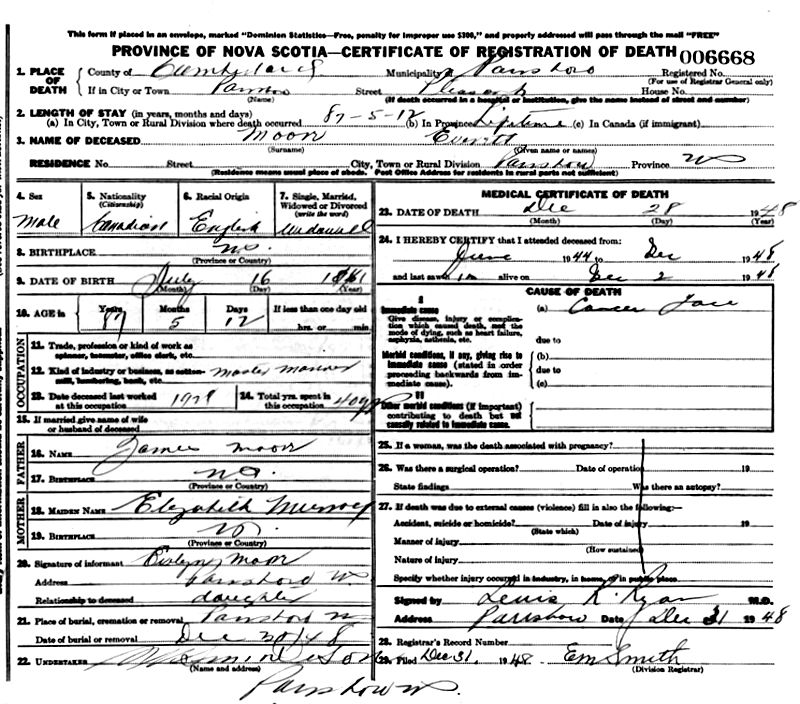 This form if placed in an envelope, marked "Dominion Statistics—Free, penalty for improper use $300," and properly addressed will pass through the mail "FREE"
PROVINCE OF NOVA SCOTIA—CERTIFICATE OF REGISTRATION OF DEATH 006668
1. PLACE OF DEATH County of Cumberland Municipality Parrsboro Registered No.
(For use of Registrar General only)
If in City or Town Street Pleasant House No.
(Name) (If death occurred in a hospital or institution, give the name instead of street and number)
2. LENGTH OF STAY (in years, months and days)
(a) In City, Town or Rural Division where death occurred 87-5-12 (b) In Province Lifetime (c) In Canada (if immigrant)
3. NAME OF DECEASED Moore Everitt
(Surname) (Given name or names)
RESIDENCE No. Street City, Town or Rural Division Parrsboro Province NS
(Residence means usual place of abode. Post Office Address for residents in rural parts not sufficient)
4. Sex 5. Nationality (Citizenship) 6. Racial Origin 7. Single, Married, Widowed or Divorced (write the word)
Male Canadian English Widowed
8. BIRTHPLACE N.S.
(Province or Country)
9. DATE OF BIRTH July 16 1861
(Month) (Day) (Year)
10. AGE in Years Months Days If less than one day old
87 5 12 hrs. or min.
OCCUPATION
11. Trade, profession or kind of work as spinner, teamster, office clerk, etc.
12. Kind of industry or business, as cotton-mill, lumbering, bank, etc. Master Mariner
13. Date deceased last worked at this occupation 24. Total yrs. spent in this occupation 40 yrs
15. If married give name of wife or husband of deceased
FATHER
16. NAME James Moore
17. BIRTHPLACE N.S.
(Province or Country)
MOTHER
18. MAIDEN NAME Elizabeth
19. BIRTHPLACE
(Province or Country)
20. Signature of informant Evelyn Moore
Address Parrsboro NS
Relationship to deceased daughter
21. Place of burial, cremation or removal Parrsboro
Date of burial or removal Dec 30/48
22. UNDERTAKER & Son
(Name and address)
Parrsboro NS.
MEDICAL CERTIFICATE OF DEATH
23. DATE OF DEATH Dec 28 1948
(Month) (Day) (Year)
24. I HEREBY CERTIFY that I attended deceased from:
June 1944 to Dec 1948
and last saw alive on Dec 2 1948
CAUSE OF DEATH
I
Immediate cause (a) Cancer Face
Give disease, injury or complication which caused death, not the mode of dying, such as heart failure, asphyxia, asthenia, etc.
due to
Morbid conditions, if any, giving rise to immediate cause (stated in order proceeding backwards from immediate cause). (b)
due to
(c)
II
Other morbid conditions (if important) contributing to death but not causally related to immediate cause.
25. If a woman, was the death associated with pregnancy?
26. Was there a surgical operation? Date of operation 19
State findings Was there an autopsy?
27. If death was due to external causes (violence) fill in also the following:—
Accident, suicide or homicide? Date of injury 19
(State which)
Manner of injury
(How sustained)
Nature of injury
Specify whether injury occurred in industry, in home, or in public place
Signed by Lewis R. Ryan M.D.
Address Parrsboro Date Dec 31 1948
28. Registrar's Record Number
29. Filed Dec 31, 1948 Em Smith
(Division Registrar)